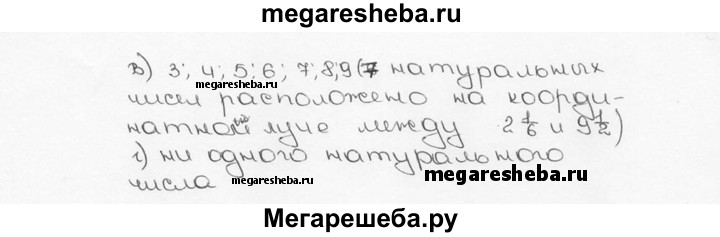 megaresheba.ru
в) 3; 4; 5; 6; 7; 8; 9 (7 натуральных
megaresheba.ru
чисел расположено на коорди-
натном луче между 2 1/6 и 9 1/2)
г) ни одного натурального
числа megaresheba.ru megaresheba.ru
Мегарешеба.ру